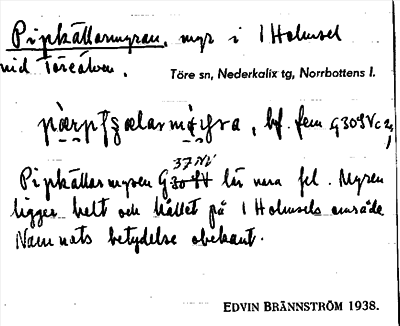 Pipkällarmyran, myr i 1 Holmsel
vid Töreälven.
Töre sn, Nederkalix tg, Norrbottens l.
bf. fem G30SVc2,
37Nv
Pipkällarmyren G30SV lär vara fel. Myren
ligger helt och hållet på 1 Holmsels område
Namnets betydelse obekant.
EDVIN BRÄNNSTRÖM 1938.